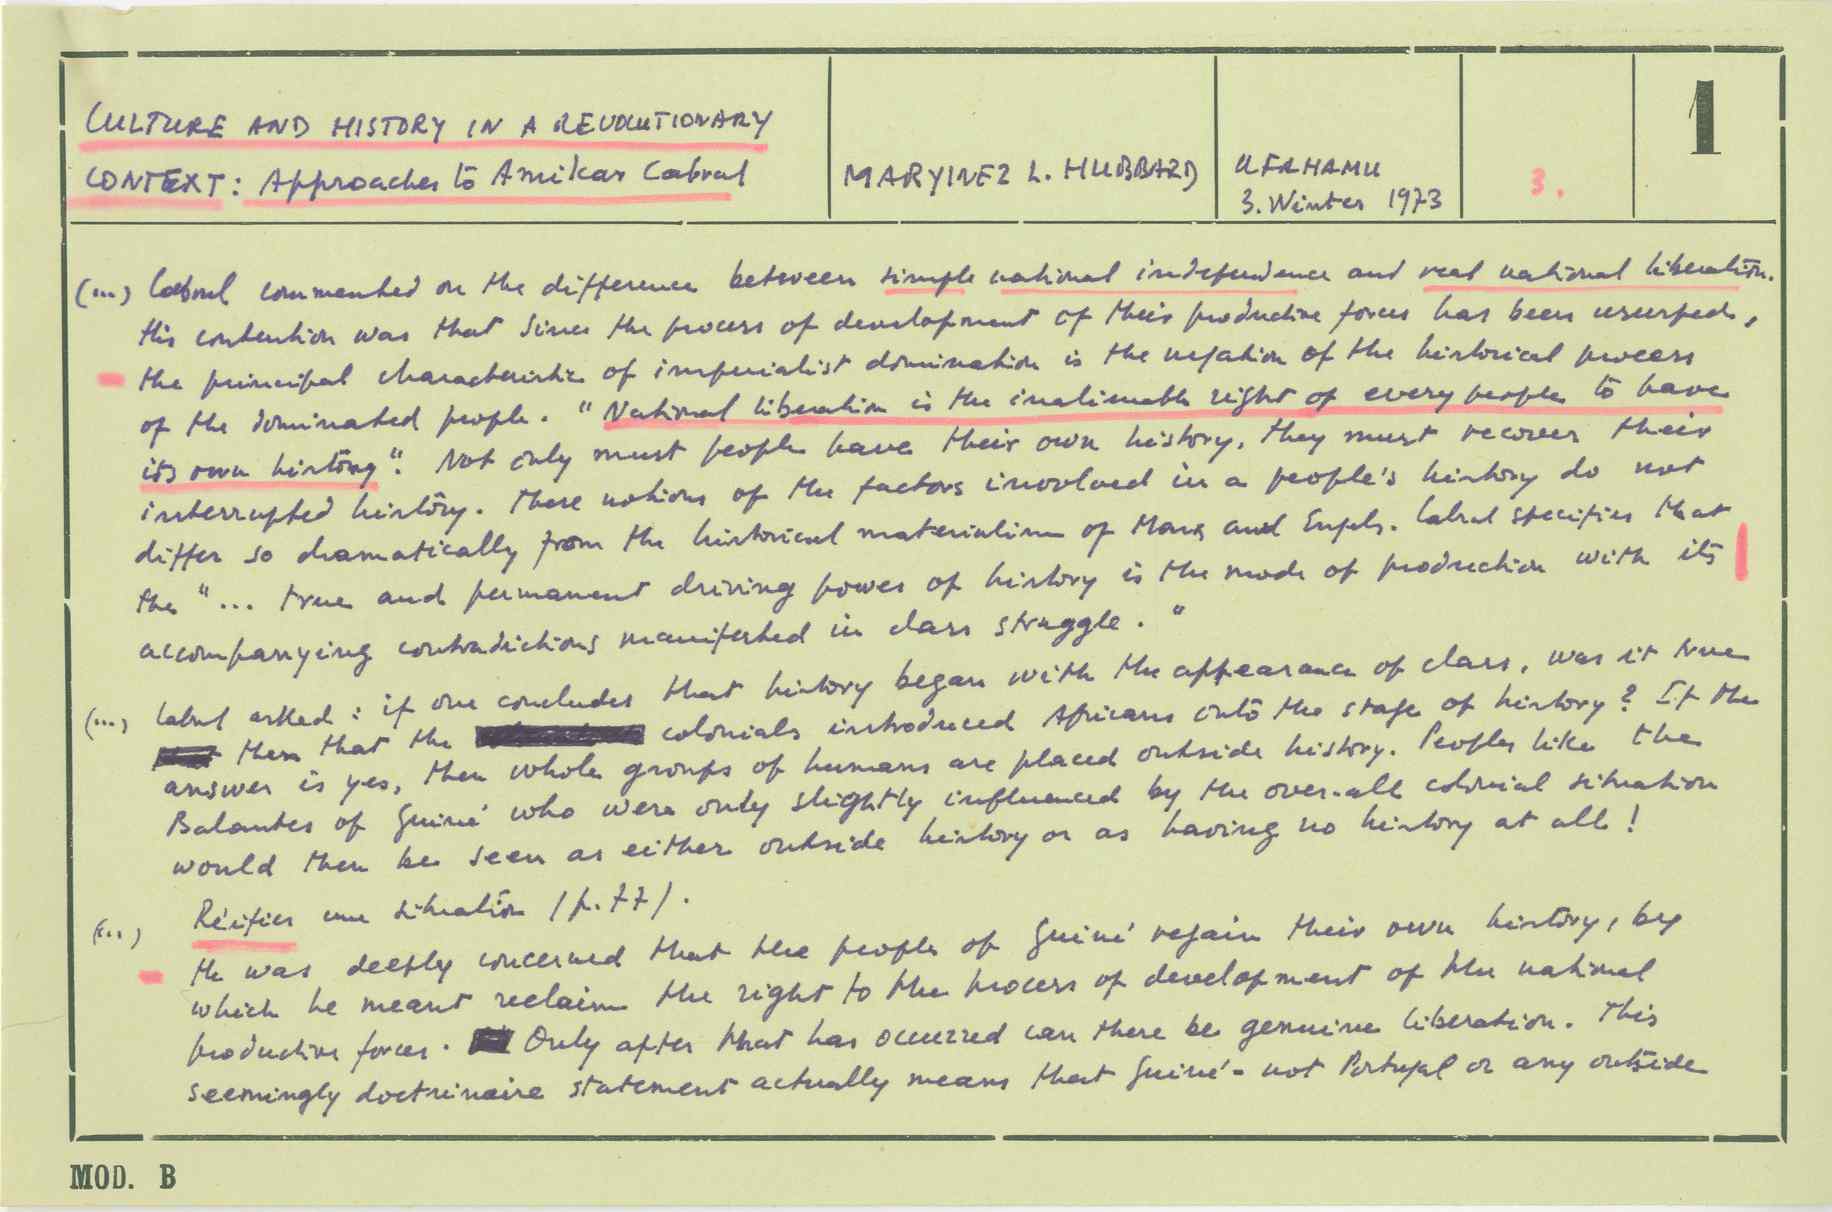 CULTURE AND HISTORY IN A REVOLUTIONARY
CONTEXT: Approaches to Amilcar Cabral
MARYINEZ L. HUBBARD
UFAHAMU
3. Winter 1973
3.
1
(...) Cabral commented on the difference between simple national independence and real national liberation.
His contention was that since the process of development of their productive forces has been usurped,
the principal characteristic of imperialist domination is the negation of the historical process
of the dominated people. "National liberation is the inalienable right of every people to have
its own history". Not only must people have their own history, they must recover their
interrupted history. These notions of the factors involved in a people's history do not
differ so dramatically from the historical materialism of Marx and Engels. Cabral specifies that
the "... true and permanent driving power of history is the mode of production with its
accompanying contradictions manifested in class struggle."
(...) Cabral asked: if one concludes that history began with the appearance of class, was it true
then that the colonials introduced Africans onto the stage of history? If the
answer is yes, then whole groups of humans are placed outside history. Peoples like the
Balantes of Guiné who were only slightly influenced by the over-all colonial situation
would then be seen as either outside history or as having no history at all!
Réifier une situation (p. 77).
(...) He was deeply concerned that the people of Guiné regain their own history, by
which he meant reclaim the right to the process of development of the national
productive forces. Only after that has occurred can there be genuine liberation. This
seemingly doctrinaire statement actually means that Guiné - not Portugal or any outside
MOD. B